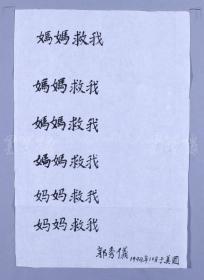 媽媽救我
媽媽救我
媽媽救我
媽媽救我
妈妈救我
妈妈救我
郭秀儀 1994年10月于美國